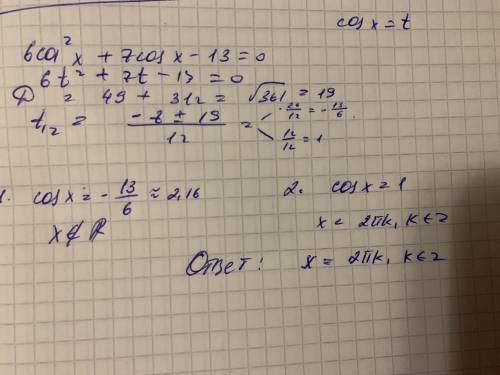 cos x = t
6cos² x + 7cos x - 13 = 0
6t² + 7t - 13 = 0
D = 49 + 312 = √361 = 19
t₁₂ = (-7 ± 19)/12 = -26/12 = -13/6
12/12 = 1
1. cos x = -13/6 ≈ 2,16
x ∉ R
2. cos x = 1
x = 2πk, k ∈ Z
Ответ: x = 2πk, k ∈ Z